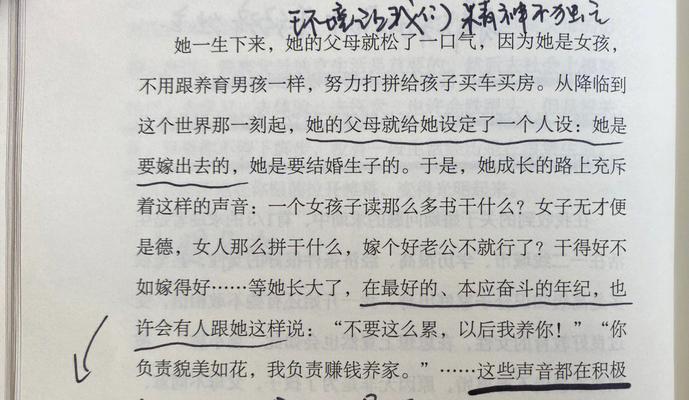 环境让我们精神不独立
她一生下来，她的父母就松了一口气，因为她是女孩，
不用跟养育男孩一样，努力打拼给孩子买车买房。从降临到
这个世界那一刻起，她的父母就给她设定了一个人设：她是
要嫁出去的，她是要结婚生子的。于是，她成长的路上充斥
着这样的声音：一个女孩子读那么多书干什么？女子无才便
是德，女人那么拼干什么，嫁个好老公不就行了？干得好不
如嫁得好……等她长大了，在最好的、本应奋斗的年纪，也
许会有人跟她这样说：“不要这么累，以后我养你！”“你
负责貌美如花，我负责赚钱养家。”……这些声音都在积极